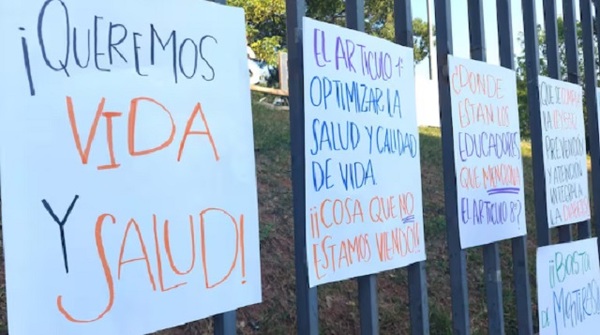 ¡QUEREMOS
VIDA
Y
SALUD!
EL ARTICULO 1°
OPTIMIZAR LA
SALUD Y CALIDAD
DE VIDA.
¡¡COSA QUE NO
ESTAMOS VIENDO!!
¿DONDE
ESTAN LOS
EDUCADORES
QUE MENCIONA
EL ARTICULO 8?
QUE SE CUMPLA
LA LEY
PREVENCIÓN
Y ATENCIÓN
INTEGRAL A
LA
¡¡BOLSITA
DE